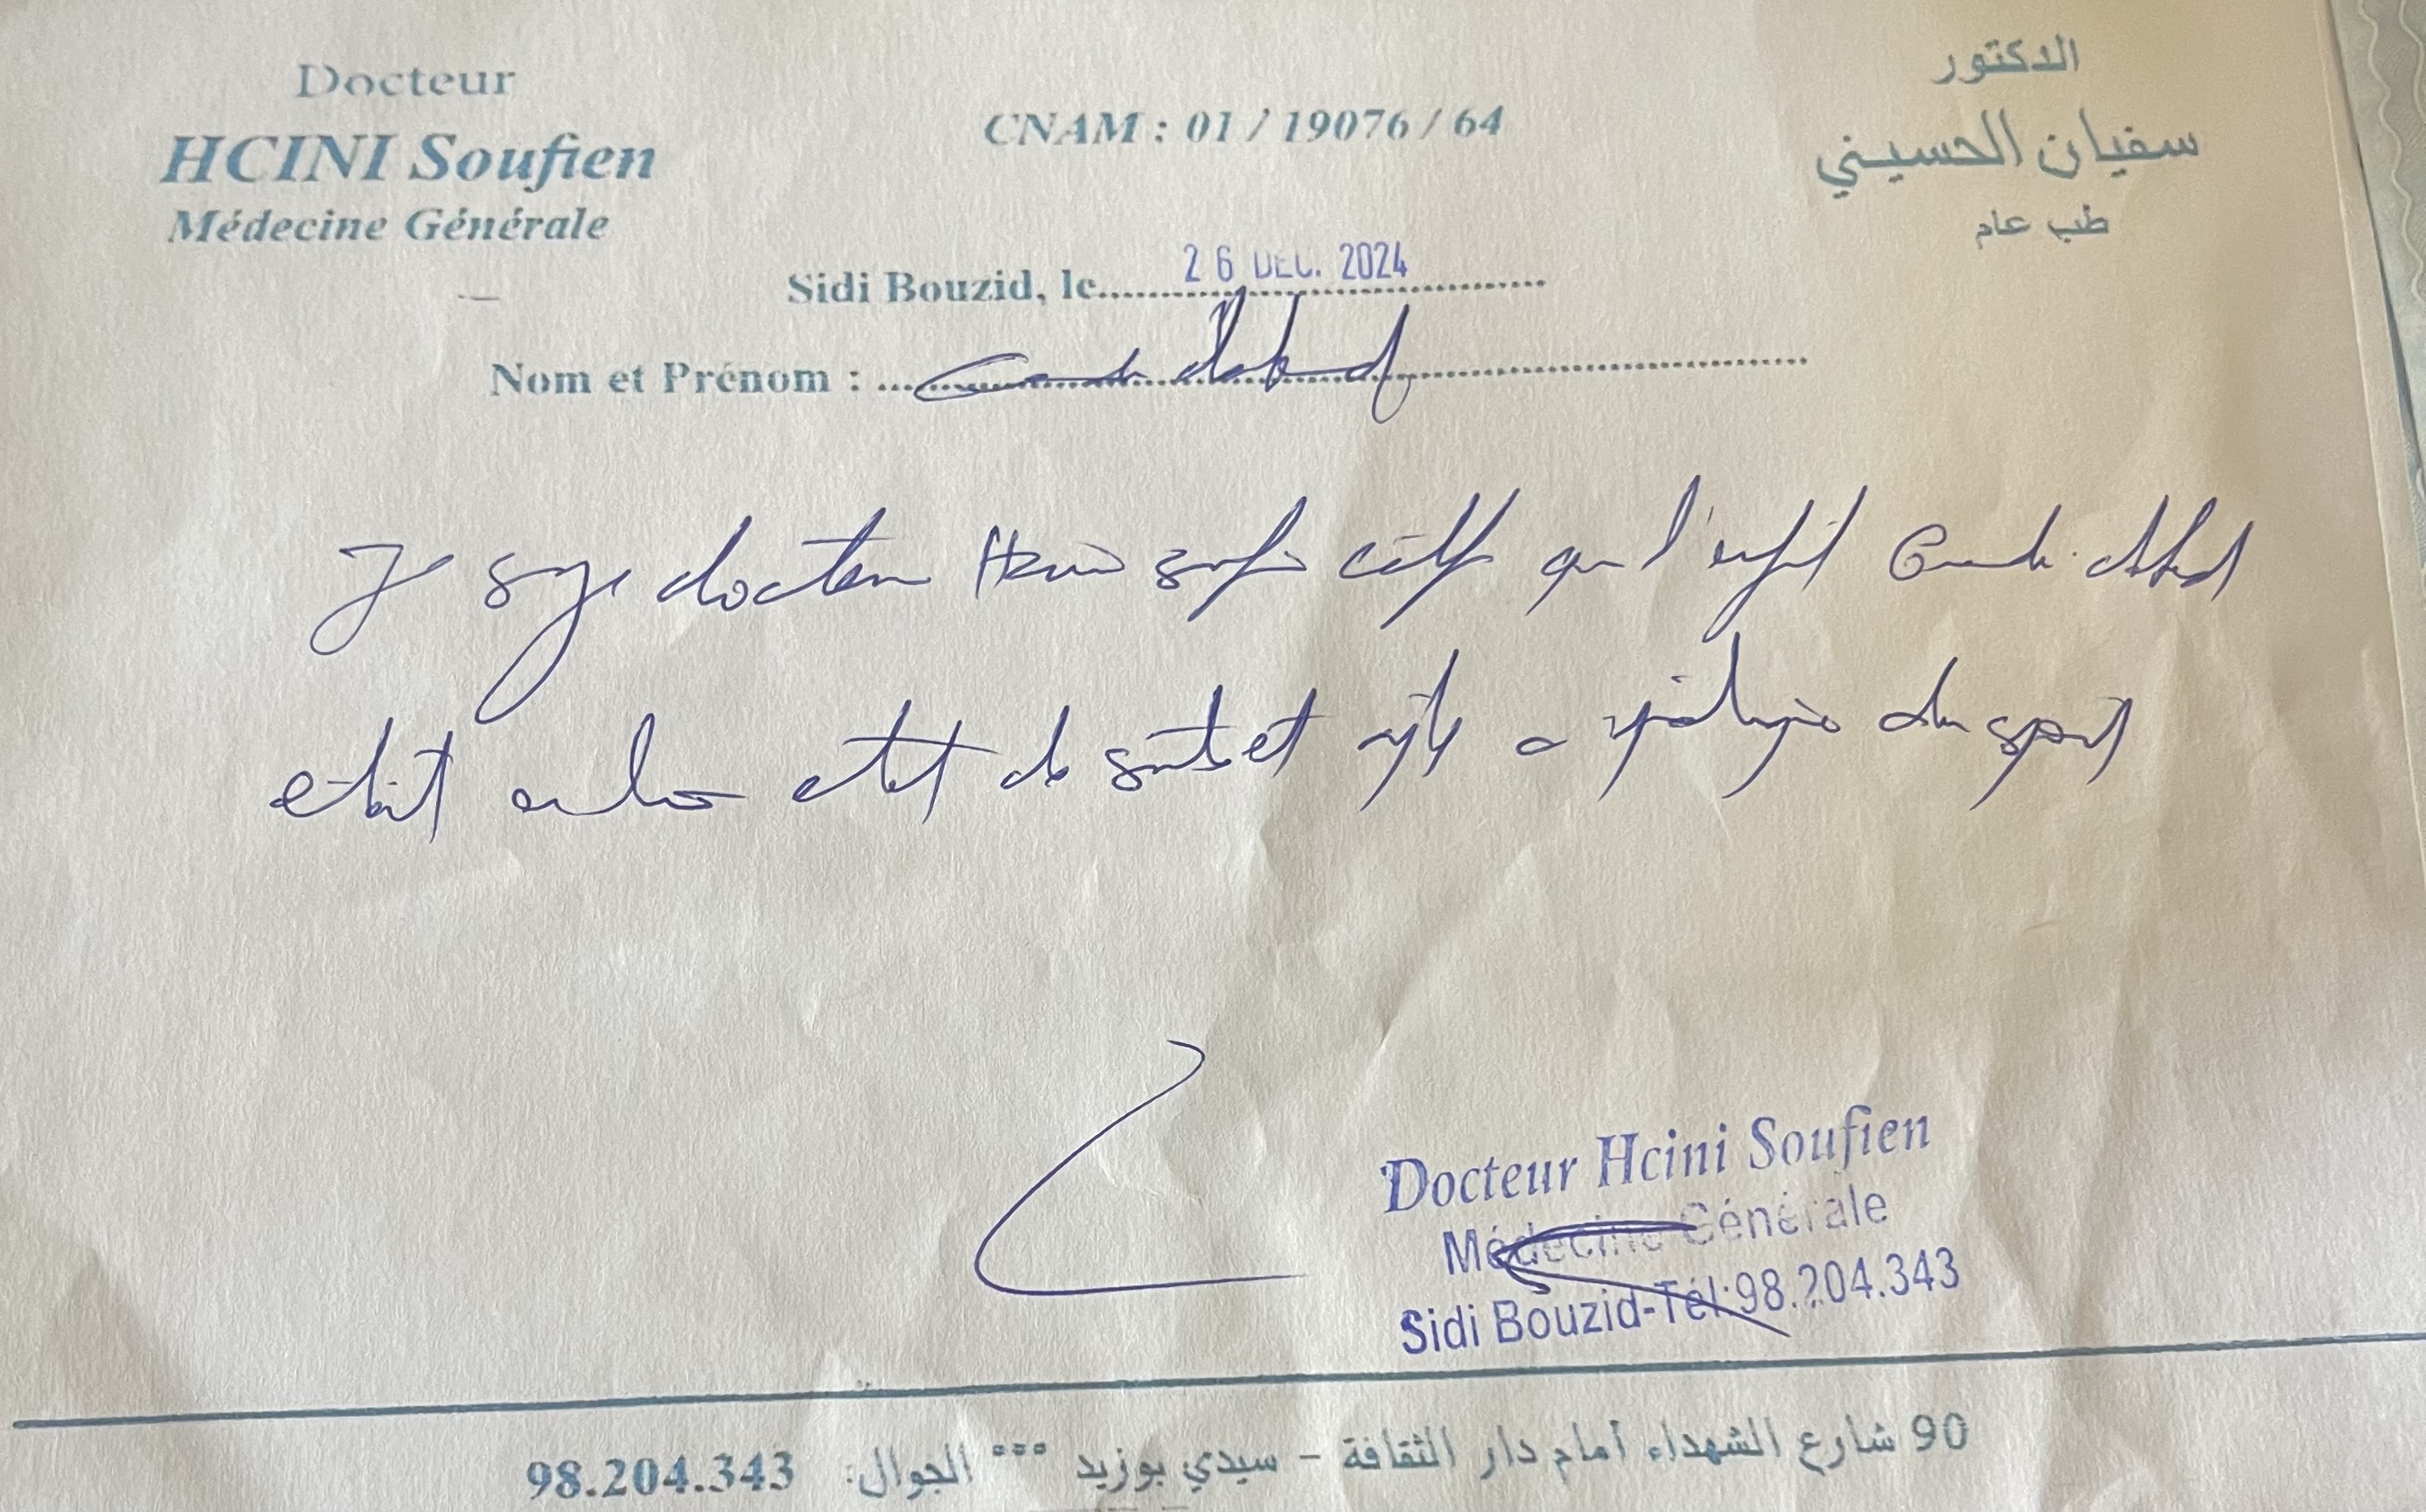 Docteur
HCINI Soufien
Médecine Générale
CNAM : 01 / 19076 / 64
الدكتور
سفيان الحسيني
طب عام
Sidi Bouzid, le 26 DEC. 2024
Nom et Prénom :
Je docteur Hcini que l'enfant
etait en bon etat de sante et du sport
Docteur Hcini Soufien
Médecine Générale
Sidi Bouzid-Tél:98.204.343
90 شارع الشهداء أمام دار الثقافة - سيدي بوزيد °°° الجوال: 98.204.343